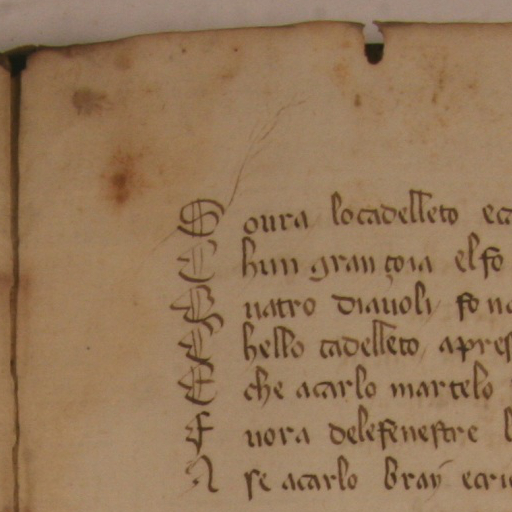 S oura lo cadelleto
C hun gran çoia el fo
Q uatro diauoli fo
E hello cadelleto apres
E che a carlo martelo
F uora dele fenestre
A se a carlo bray ecri